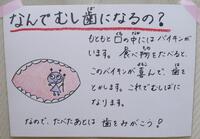 なんでむし歯になるの？
もともと口の中にはバイキンが
います。食べ物をたべると、
このバイキンが喜んで、歯を
とかします。これでむしばに
なります。
なので、たべたあとは 歯をみがこう？